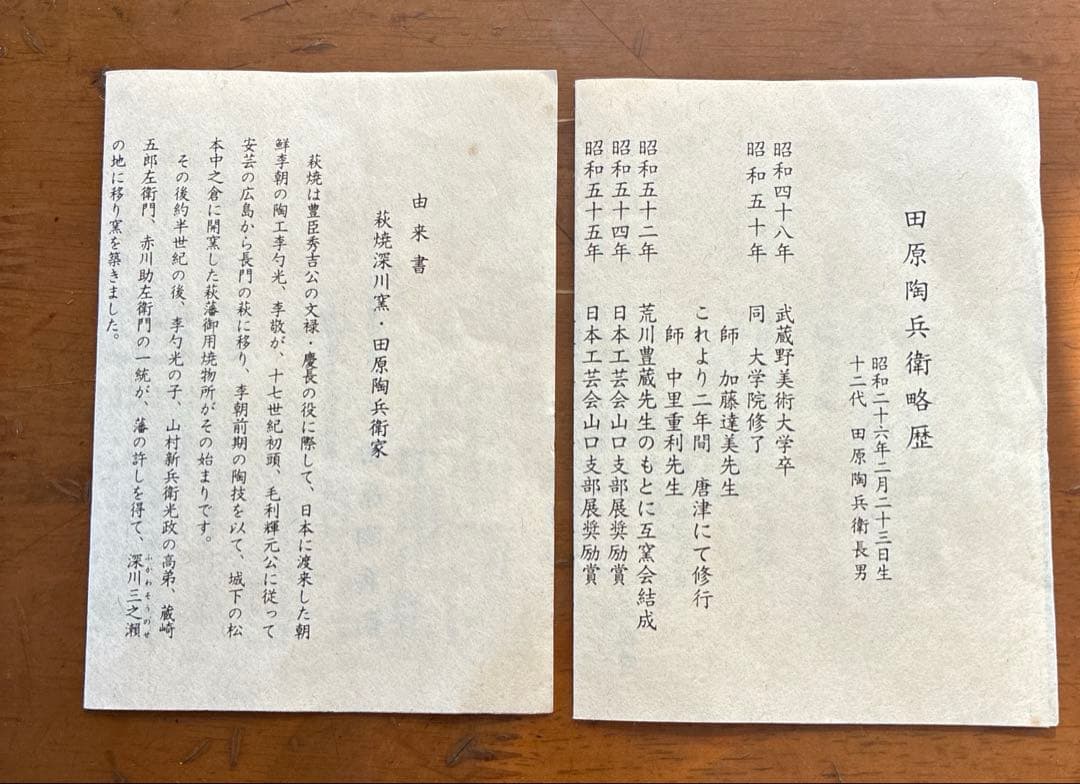 田原陶兵衛略歴
昭和二十六年二月二十三日生
十二代 田原陶兵衛長男
昭和四十八年 武蔵野美術大学卒
昭和五十年 同 大学院修了
師 加藤達美先生
これより二年間 唐津にて修行
師 中里重利先生
昭和五十二年 荒川豊蔵先生のもとに互窯会結成
昭和五十四年 日本工芸会山口支部展奨励賞
昭和五十五年 日本工芸会山口支部展奨励賞
由来書
萩焼深川窯・田原陶兵衛家
萩焼は豊臣秀吉公の文禄・慶長の役に際して、日本に渡来した朝
鮮李朝の陶工李勺光、李敬が、十七世紀初頭、毛利輝元公に従って
安芸の広島から長門の萩に移り、李朝前期の陶技を以て、城下の松
本中之倉に開窯した萩藩御用焼物所がその始まりです。
その後約半世紀の後、李勺光の子、山村新兵衛光政の高弟、蔵崎
五郎左衛門、赤川助左衛門の一統が、藩の許しを得て、深川三之瀬
ふかわそうのせ
の地に移り窯を築きました。